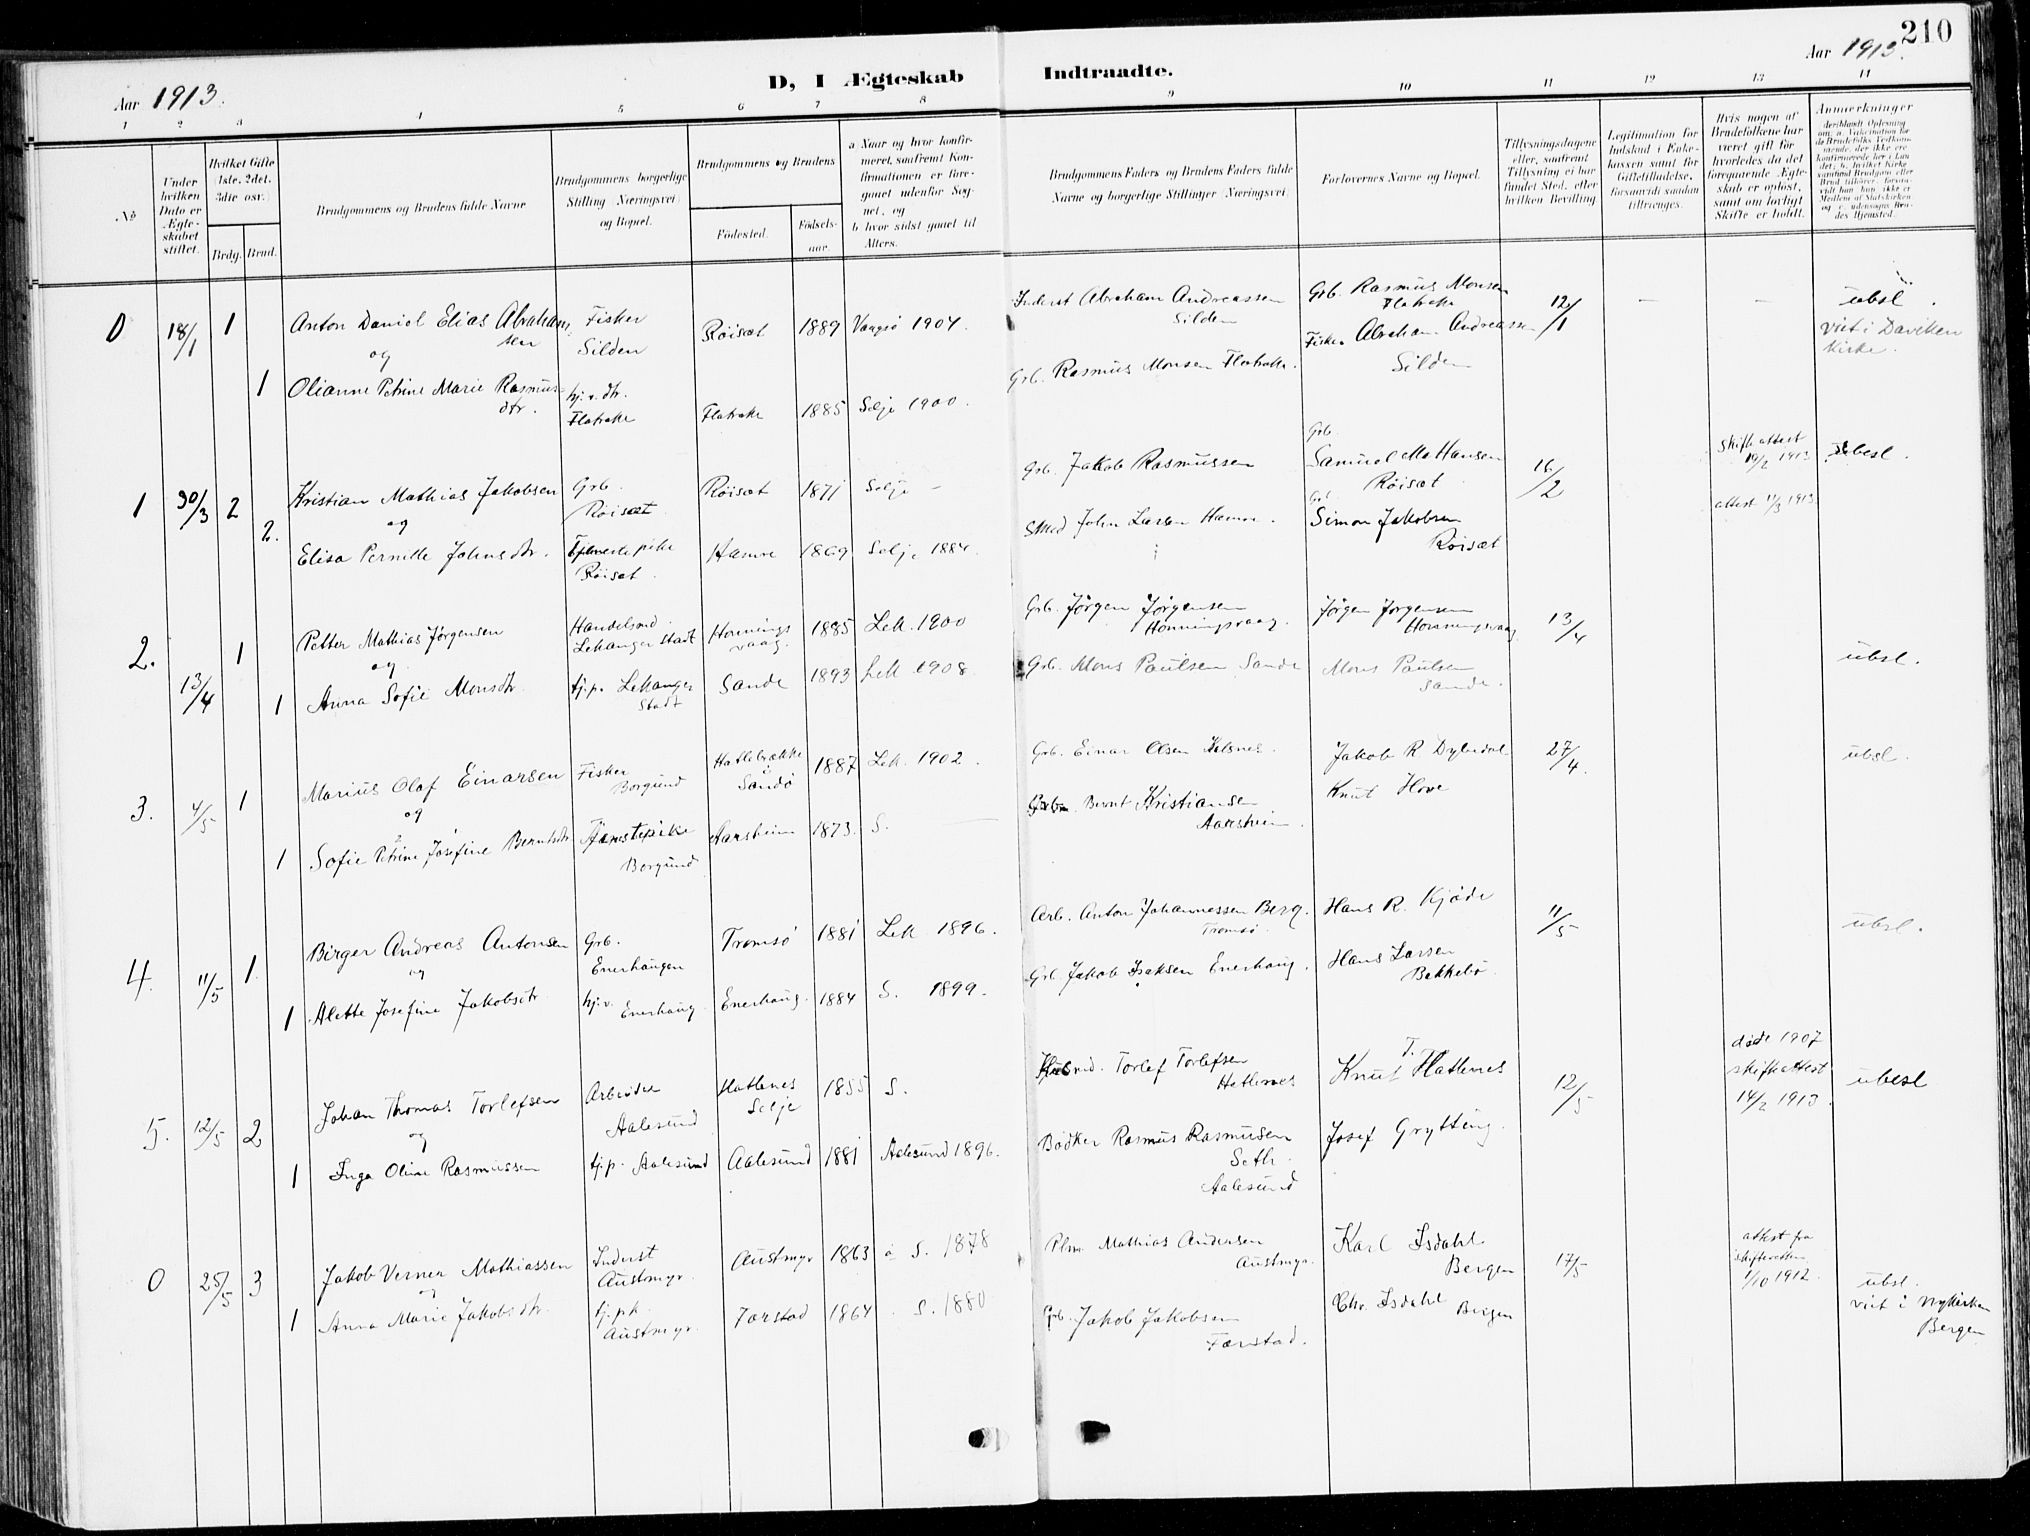 210
Aar 1913.
D, I Ægteskab Indtraadte.
Aar 1913.
1 2 3 4 5 6 7 8 9 10 11 12 13 14
No
Under hvilken Dato er Ægteskabet stiftet.
Hvilket Gifte (1ste, 2det, 3die osv.)
Brdg. Brud.
Brudgommens og Brudens fulde Navne
Brudgommens borgerlige Stilling (Næringsvei) og Bopæl.
Brudgommens og Brudens
Fødested. Fødsels-aar.
a Naar og hvor konfirmeret, saafremt Konfirmationen er foregaaet udenfor Sognet, og
b hvor sidst gaaet til Alters.
Brudgommens Faders og Brudens Faders fulde Navne og borgerlige Stillinger (Næringsvei)
Forlovernes Navne og Bopæl.
Tillysningsdagene eller, saafremt Tillysning ei har fundet Sted, efter hvilken Bevilling
Legitimation for Indskud i Enkekassen samt for Giftetilladelse, forsaavidt saadan tiltrænges.
Hvis nogen af Brudefolkene har været gift før hvorledes da det foregaaende Ægteskab er opløst, samt om lovligt Skifte er holdt.
Anmerkninger
0 18/1 1 Anton Daniel Elias Abrahamsen Fisker Silden Røisæt 1889 Vaagsø 1904. Inderst Abraham Andreassen Silden Grb. Rasmus Monsen Flatrake 12/1 — — ubsl.
og
1 Olianne Petrine Marie Rasmusdtr. hj.v. dtr. Flatrake Flatrake 1885 Selje 1900. Grb. Rasmus Monsen Flatrake. Fisker Abraham Andreassen Silden viet i Daviken Kirke.
1 30/3 2 Kristian Mathias Jakobsen Grb. Røisæt Røisæt 1871 Selje — Grb. Jakob Rasmussen Grb. Samuel M. Hansen Røisæt 16/2 Skifteattest 19/2 1913 ubesl.
og
2. Elisa Pernille Johnsdtr. Tjenestepike Røisæt. Hamre 1869 Selje 1884. Smed John Larsen Hamre. Grb. Simon Jakobsen Røisæt attest 11/3 1913
2. 13/4 1 Petter Mathias Jørgensen Handelsmd. Lekanger Stadt Honningsvaag. 1885 Lek. 1900 Grb. Jørgen Jørgensen Honningsvaag. Jørgen Jørgensen Honningsvaag 13/4 ubsl.
og
1 Anna Sofie Monsdtr. tj.p. Lekanger Stadt Sande 1893 Lek. 1908 Grb. Mons Paulsen Sande Mons Paulsen Sande.
3. 4/5 1 Marius Olaf Einarsen Fisker Borgund Hatlebrække i Sandø 1887 Lek. 1902. Grb. Einar Olsen Jakob R. Dybedal 27/4. ubsl.
og
1 Sofie Petrine Josefine Berntsdtr. Tjenestepike Borgund Aarsheim 1873. S. — Bernt Kristiansen Aarsheim. Knut Hove
4. 11/5 1. Birger Andreas Antonsen Grb. Enerhaugen Tromsø 1881 Lek 1896. Arb. Anton Johannessen Berg. Tromsø. Hans R. Kjøde 11/5 ubsl.
og
1 Alette Josefine Jakobsdtr. hj.v. Enerhaug Enerhaug. 1884 S. 1899. Grb. Jakob Isaksen Enerhaug. Hans Larsen Bekkebø
5. 12/5 2 Johan Thomas Torlefsen Arbeider Aalesund Hatlenes Selje 1855 S. Husmd. Torlef Torlefsen Hatlenes Knut T. Hatlenes 12/5 døde 1907 skifteattest 14/2 1913. ubesl
og
1 Inga Oline Rasmussen tj.p. Aalesund Aalesund 1881 Aalesund 1896. Bødker Rasmus Rasmusen Aalesund Josef Grytting.
0 25/5 3 Jakob Verner Mathiassen Inderst Austmyr. Austmyr 1863 a S. 1878 Plm. Mathias Andersen Austmyr. Karl Isdahl Bergen 17/5 attest fra skifteretten 1/10 1912. ubsl.
og
1 Anna Marie Jakobsdtr. tj.pk. Austmyr. Førstad 1864 S. 1880 Grb. Jakob Jakobsen Førstad. Chr. Isdahl Bergen viet i Nykirken Bergen